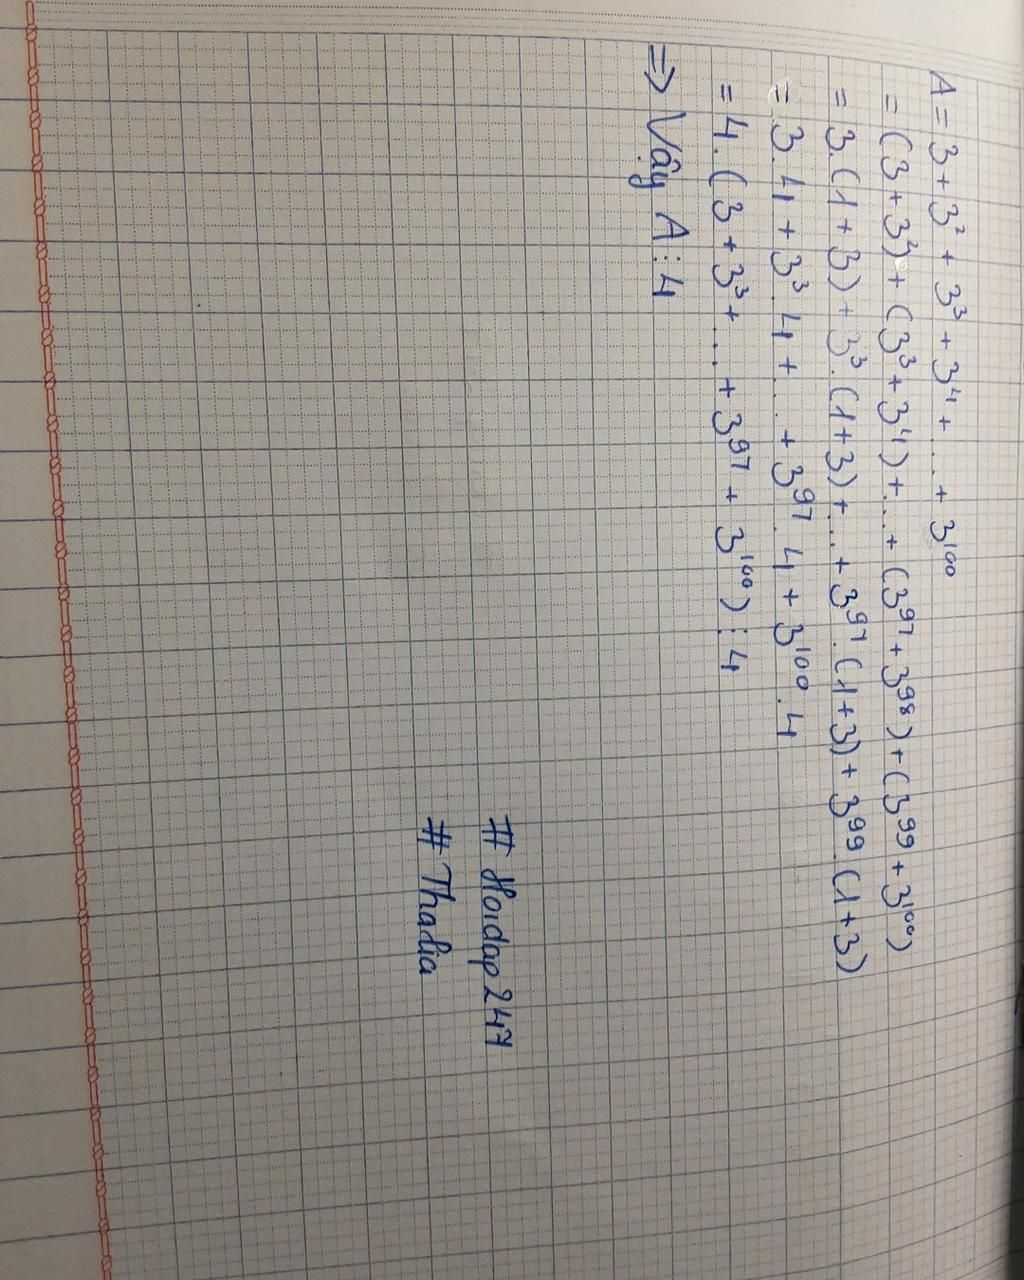 A = 3 + 3² + 3³ + 3⁴ + ... + 3¹⁰⁰
= (3 + 3²) + (3³ + 3⁴) + ... + (3⁹⁷ + 3⁹⁸) + (3⁹⁹ + 3¹⁰⁰)
= 3.(1 + 3) + 3³.(1 + 3) + ... + 3⁹⁷.(1 + 3) + 3⁹⁹.(1 + 3)
= 3.4 + 3³.4 + ... + 3⁹⁷.4 + 3¹⁰⁰.4
= 4.(3 + 3³ + ... + 3⁹⁷ + 3¹⁰⁰) ⋮ 4
=> Vậy A ⋮ 4
# Hoidap247
# Thadia